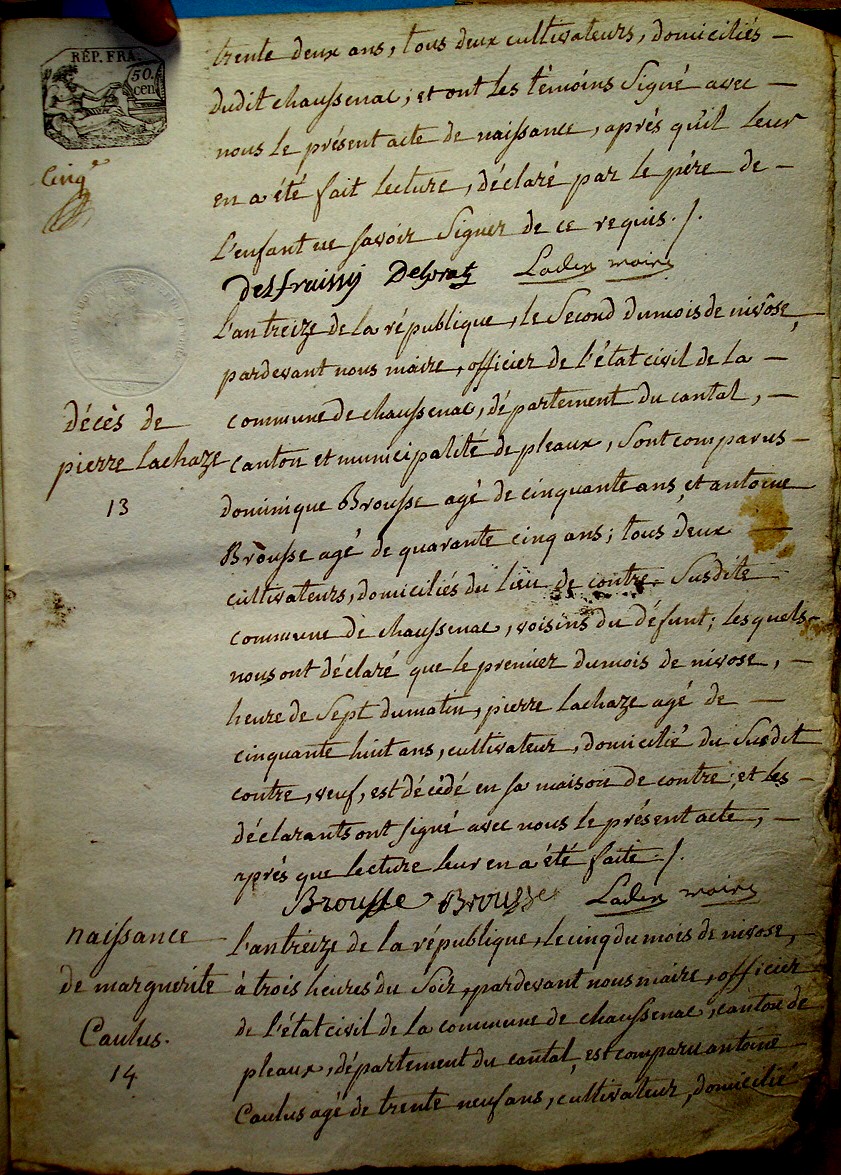 RÉP. FRA.
50.
cen
Cinq e
trente deux ans, tous deux cultivateurs, domiciliés —
dudit chaussenac; et ont les témoins signé avec —
nous le présent acte de naissance, après qu'il leur
en a été fait lecture, déclaré par le père de —
l'enfant ne savoir signer de ce requis ./.
Delfraissy Delprat Laden maire
l'an treize de la république, le second du mois de nivôse, —
pardevant nous maire, officier de l'état civil de la —
décès de
pierre Lachaze
13
commune de chaussenac, département du cantal, —
canton et municipalité de pleaux, sont comparus —
dominique Brousse agé de cinquante ans, et antoine
Brousse agé de quarante cinq ans; tous deux —
cultivateurs, domiciliés du lieu de contre susdite
commune de chaussenac, voisins du défunt; lesquels
nous ont déclaré que le premier du mois de nivose, —
heure de sept du matin, pierre Lachaze agé de —
cinquante huit ans, cultivateur, domicilié du susdit
contre, veuf, est décédé en sa maison de contre; et les —
déclarants ont signé avec nous le présent acte, —
après que lecture leur en a été faite ./.
Brousse Brousse Laden maire
naissance
de marguerite
Caulus.
14
l'an treize de la république, le cinq du mois de nivose, —
à trois heures du soir, pardevant nous maire, officier
de l'état civil de la commune de chaussenac, canton de
pleaux, département du cantal, est comparu antoine
Caulus agé de trente neuf ans, cultivateur, domicilié